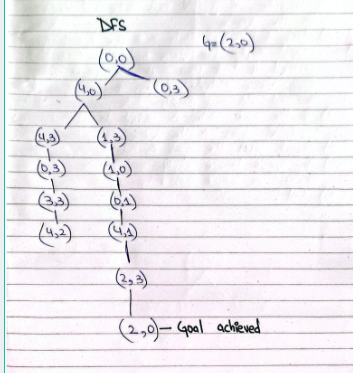 DFS
G=(2,0)
(0,0)
(4,0) (0,3)
(4,3) (1,3)
(0,3) (1,0)
(3,3) (0,1)
(4,2) (4,1)
(2,3)
(2,0)— Goal achieved